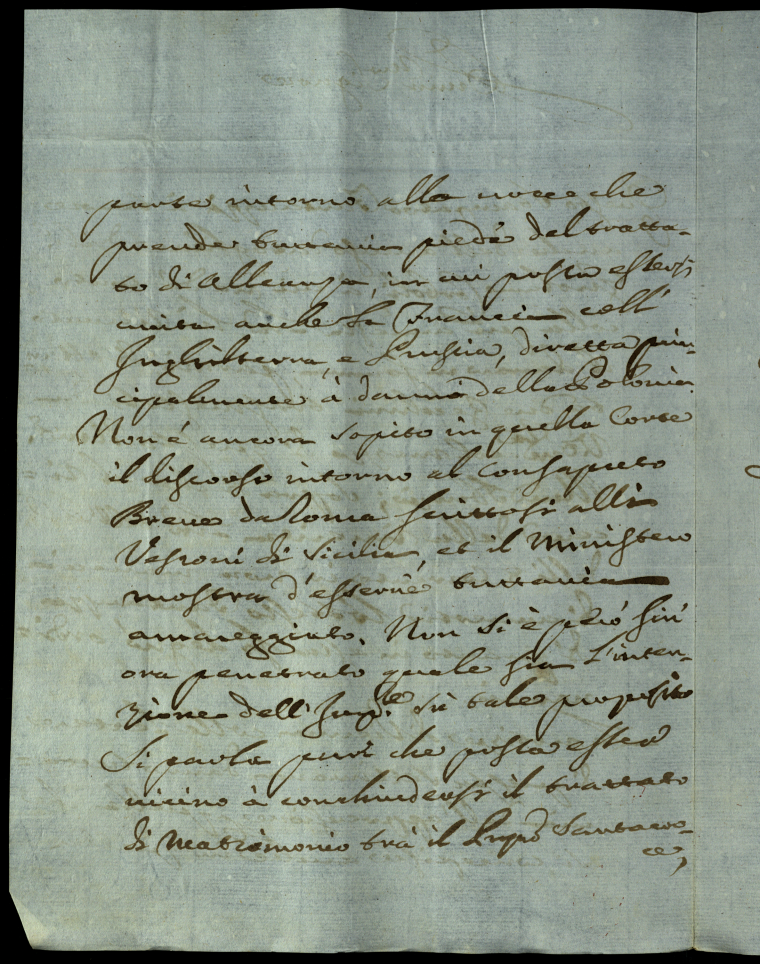 parte intorno alla voce che
prende tuttavia piede del tratta-
to di Alleanza, in cui possa essersi
unita anche la Francia coll'
Inghilterra, e Prussia, diretta prin-
cipalmente à danni della Polonia.
Non é ancora sopito in quella Corte
il discorso intorno al consaputo
Breve da Roma scrittosi alli
Vescovi di Sicilia, et il Ministero
mostra d'esserne tuttavia
amareggiato. Non si è però sin'
ora penetrato quale sia l'inten-
zione dell'Imp.re sù tale proposito
Si parla pure che possa esser
vicino à conchiudersi il trattato
di Matrimonio trà il Santacro-
ce,